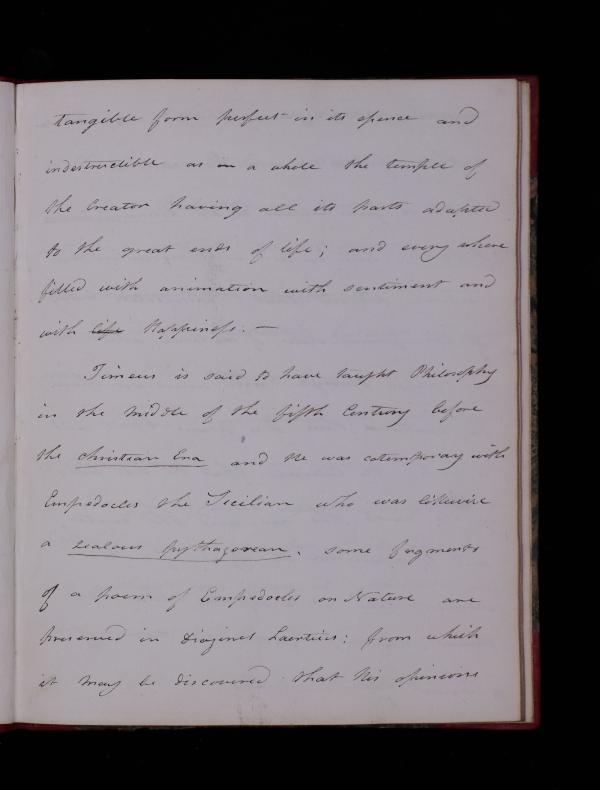 tangible form perfect in its essence and
indestructible as in a whole the temple of
the Creator having all its parts adapted
to the great ends of life; and every where
filled with animation with sentiment and
with life Happiness. —
Timeus is said to have taught Philosophy
in the middle of the fifth Century before
the christian Era and He was cotemporary with
Empedocles the Sicilian who was likewise
a zealous pythagorean. some fragments
of a poem of Empedocles on Nature are
preserved in Diogines Laertius; from which
it may be discovered that his opinions